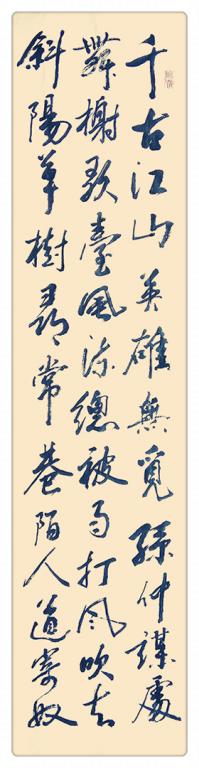 千古江山英雄無覓孫仲謀處
舞榭歌臺風流總被雨打風吹去
斜陽草樹尋常巷陌人道寄奴